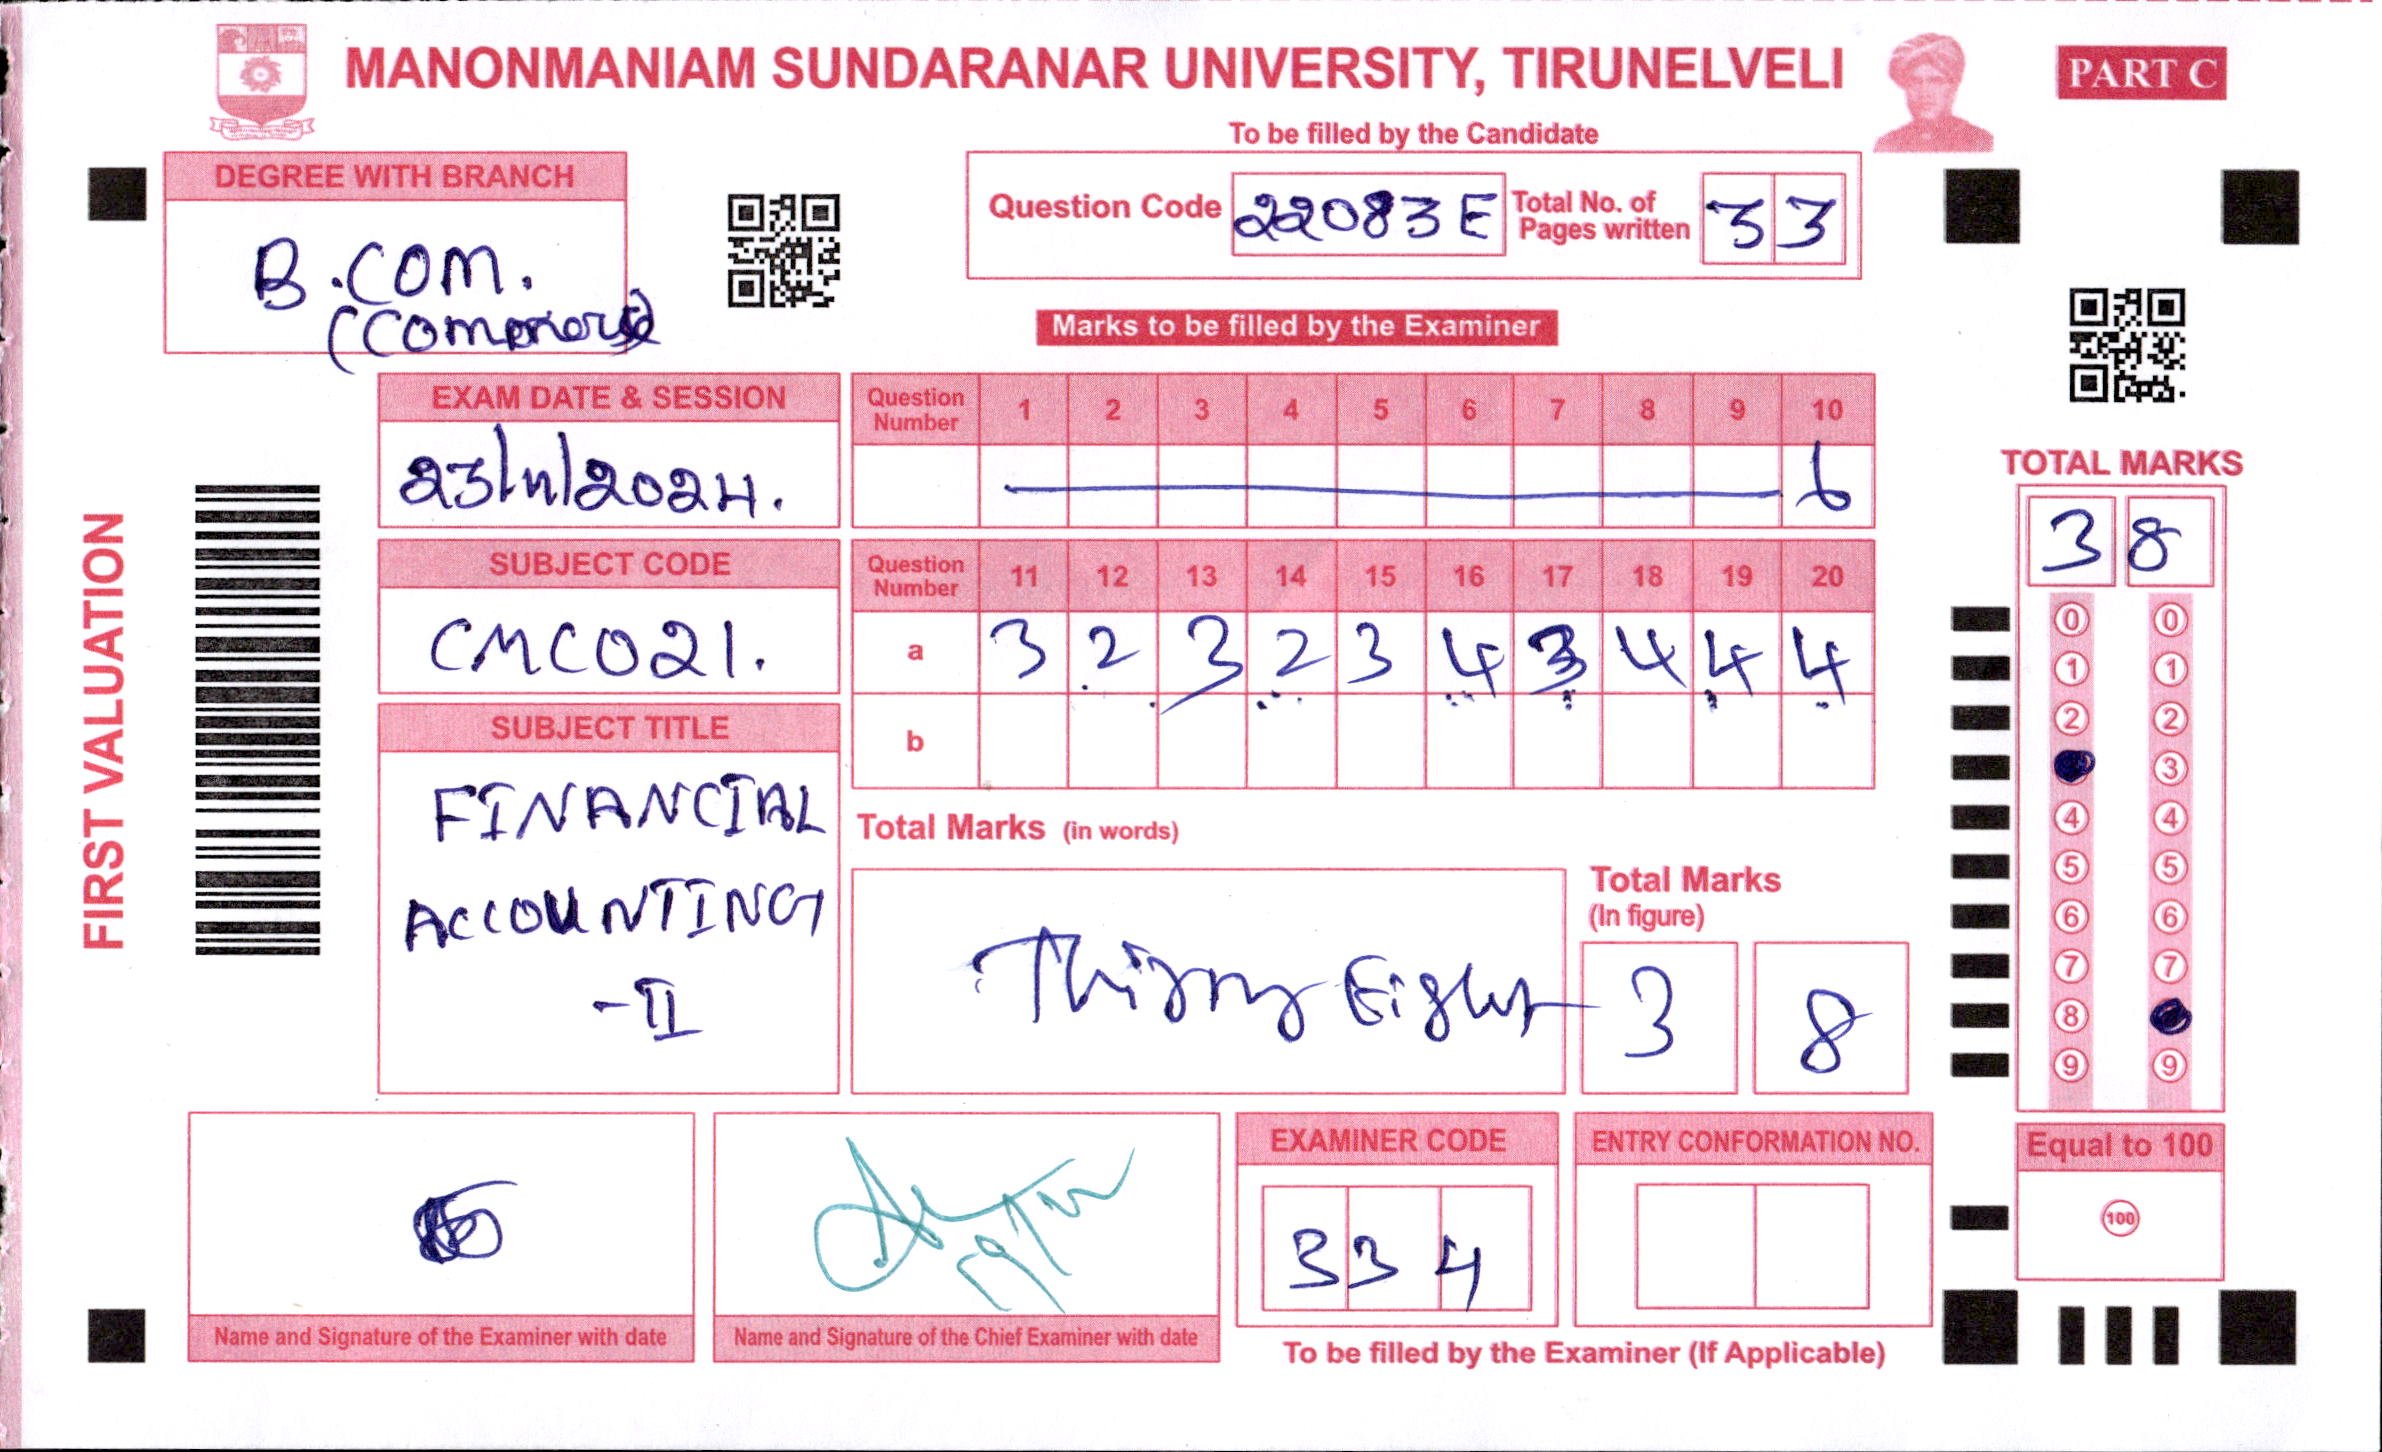 MANONMANIAM SUNDARANAR UNIVERSITY, TIRUNELVELI
PART C
To be filled by the Candidate
DEGREE WITH BRANCH
B.COM.
Question Code 22083E Total No. of Pages written 33
Marks to be filled by the Examiner
EXAM DATE & SESSION
23/11/2024.
Question Number 1 2 3 4 5 6 7 8 9 10
6
SUBJECT CODE
CMCO21.
Question Number 11 12 13 14 15 16 17 18 19 20
a 3 2 3 2 3 4 3 4 4 4
b
SUBJECT TITLE
FINANCIAL
ACCOUNTING
-II
Total Marks (in words)
Thirty Eight
Total Marks
(In figure)
3 8
FIRST VALUATION
TOTAL MARKS
3 8
0 0
1 1
2 2
3
4 4
5 5
6 6
7 7
8
9 9
Equal to 100
100
Name and Signature of the Examiner with date
Name and Signature of the Chief Examiner with date
EXAMINER CODE
3 3 4
ENTRY CONFORMATION NO.
To be filled by the Examiner (If Applicable)